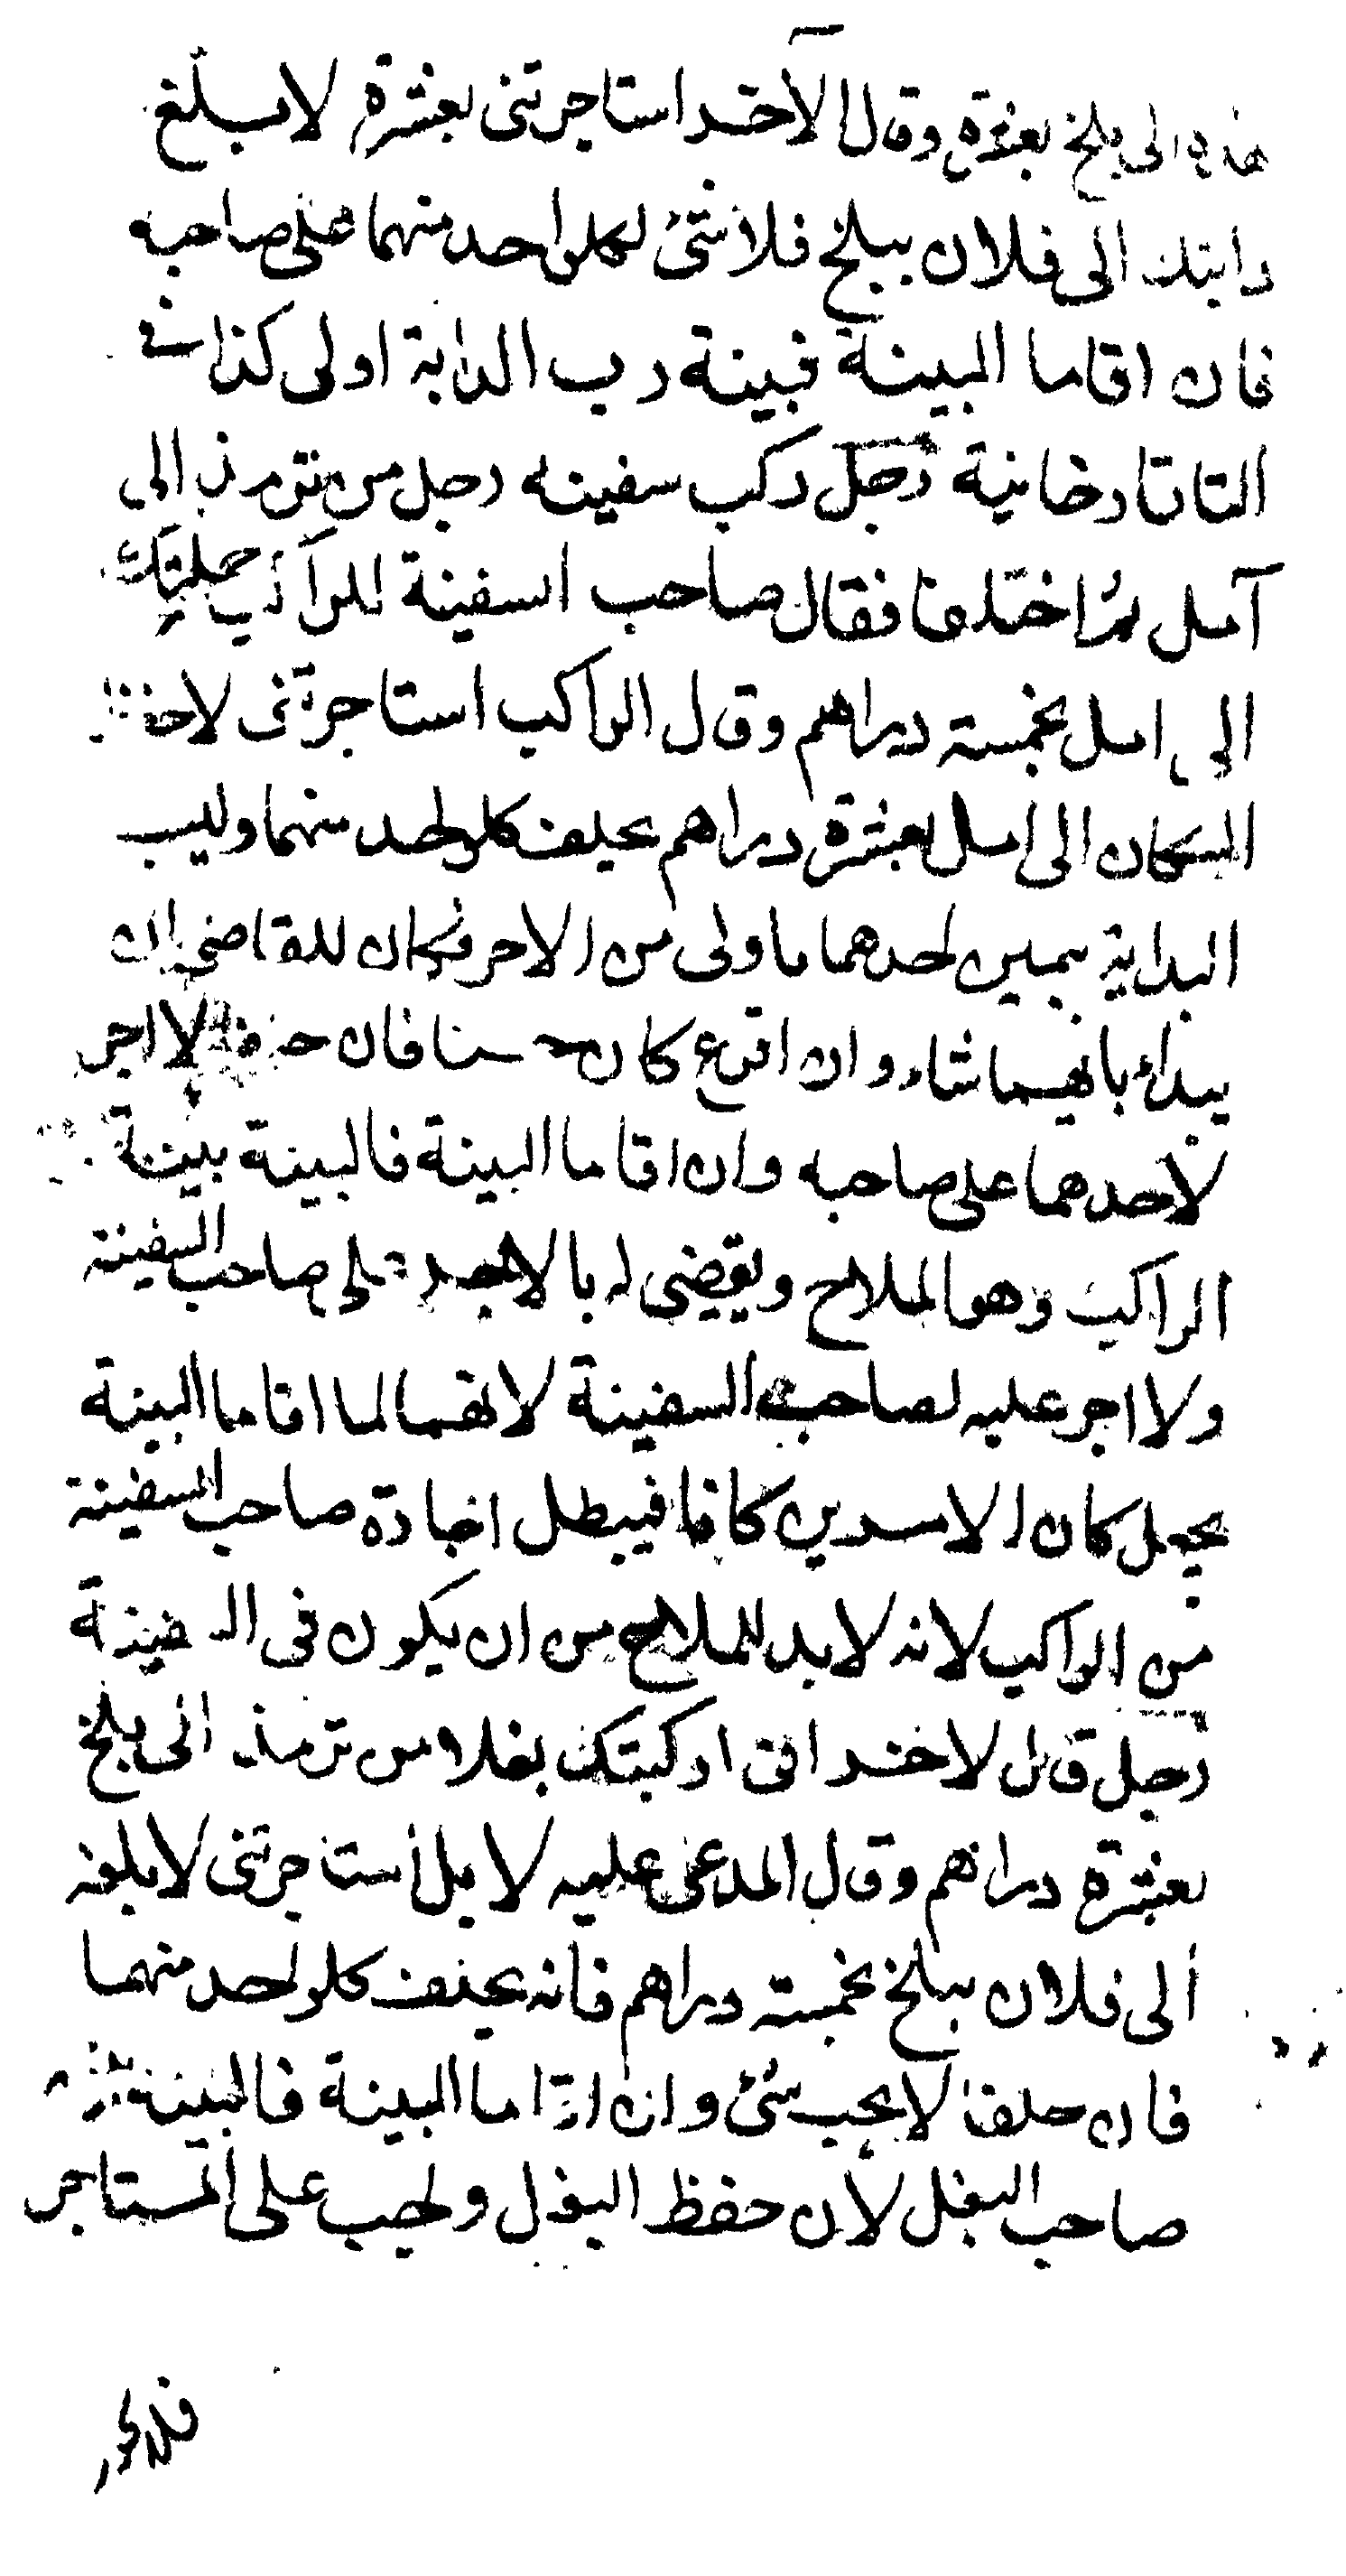 هذه الى بلخ بعشرة وقال الآخر استاجرتنى بعشرة لابلغ
دابتك الى فلان ببلخ فلا شئ لكل واحد منهما على صاحبه
فان اقاما البينة فبينة رب الدابة اولى كذا فى
التاتارخانية رجل ركب سفينة رجل من ترمذ الى
آمل ثم اختلفا فقال صاحب السفينة للراكب حملتك
الى امل بخمسة دراهم وقال الراكب استاجرتنى لاحفظ
السكان الى امل بعشرة دراهم يحلف كل واحد منهما وليس
البداية بيمين احدهما باولى من الاخر فكان للقاضى ان
يبداء بايهما شاء وان اقرع كان حسنا فان حلفا لا اجر
لاحدهما على صاحبه وان اقاما البينة فالبينة بينة
الراكب وهو الملاح ويقضى له بالاجر على صاحب السفينة
ولا اجر عليه لصاحب السفينة لانهما لما اقاما البينة
يجعل كان الامرين كانا فيبطل اجارة صاحب السفينة
من الراكب لانه لابد للملاح من ان يكون فى السفينة
رجل قال لاخر انى اركبتك بغلا من ترمذ الى بلخ
بعشرة دراهم وقال المدعى عليه لا بل استاجرتنى لابلغه
الى فلان ببلخ بخمسة دراهم فانه يحلف كل واحد منهما
فان حلفا لا يجب شئ وان اقاما البينة فالبينة
صاحب البغل لان حفظ البغل واجب على المستاجر